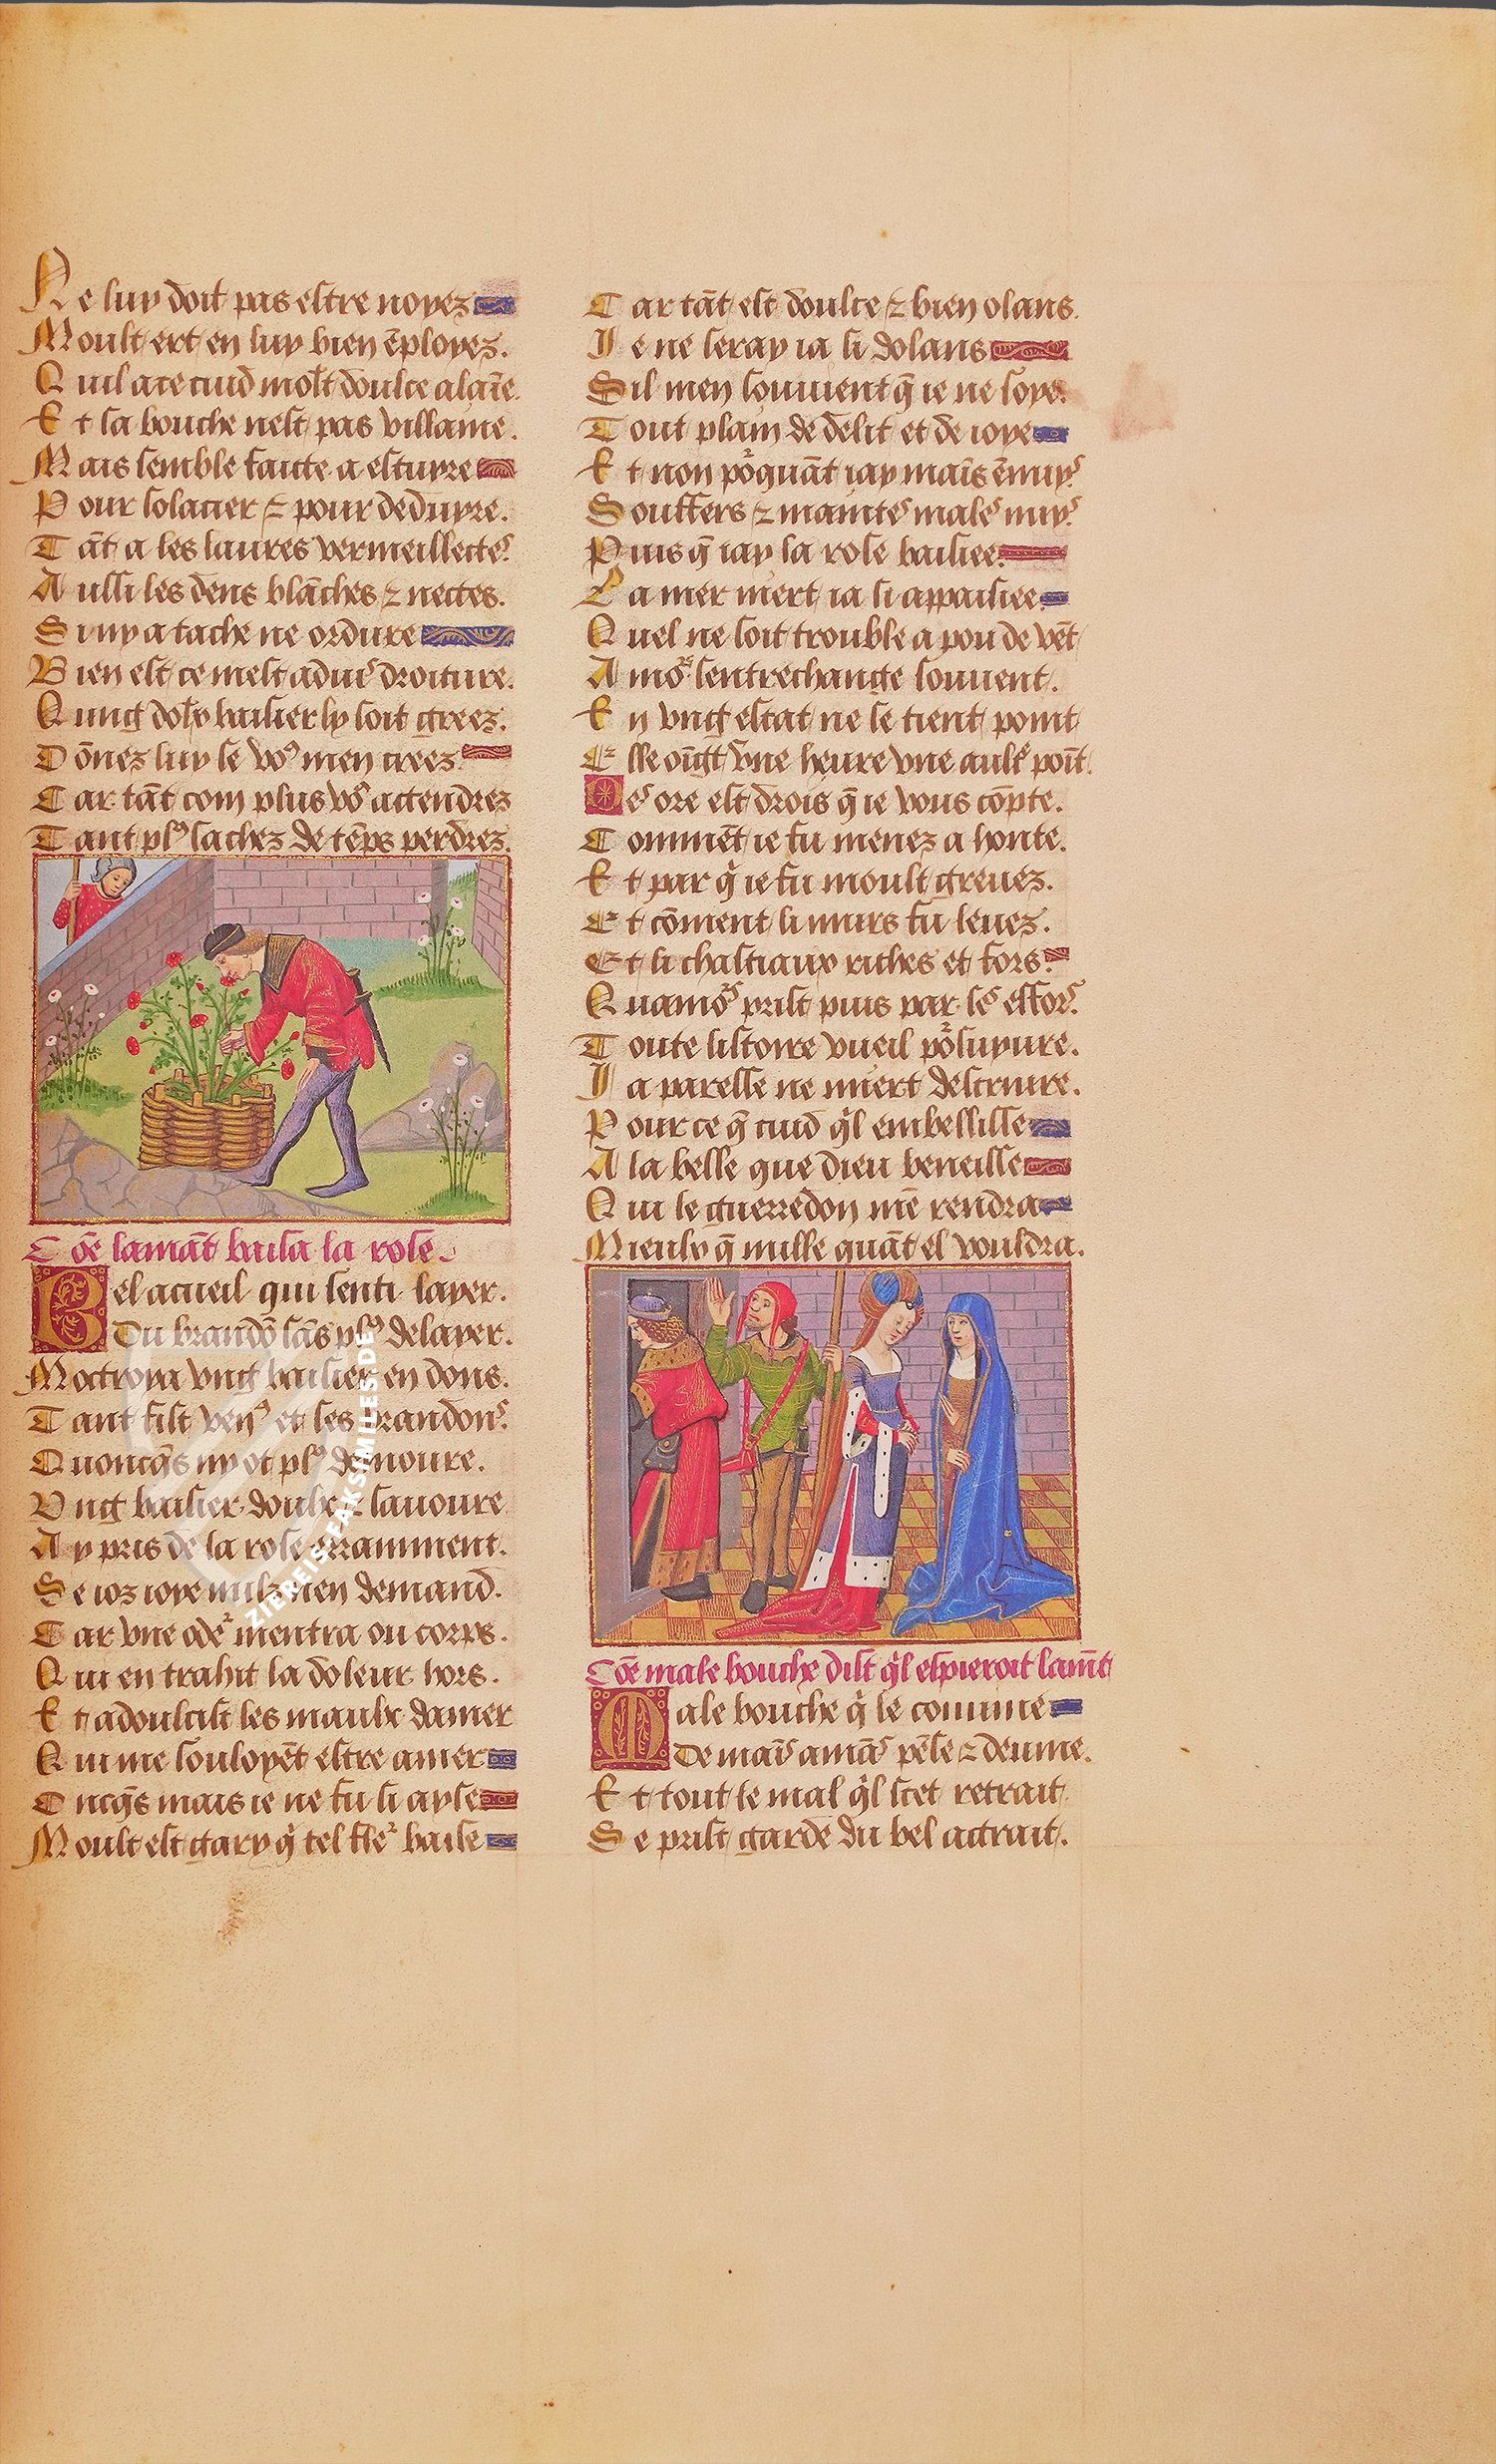 Ne luy doit pas estre noyez
Moult ert en luy bien ēployez.
Quil a ce cuid molt doulce alaīe.
Et sa bouche nest pas villaine.
Mais semble faicte a estuyre
Pour solacier ⁊ pour deduyre.
Tāt a les laures vermeillectes
Aussi les dens blāches ⁊ nectes.
Si ny a tache ne ordure
Bien est ce mest aduis droiture.
Qung doly baisier ly soit greez.
Dōnez luy se voꝰ men creez.
Car tāt com plus voꝰ actendrez
Tant plꝰ sachez de tēps perdrez.
Cōe lamāt baisa la rose.
Bel acueil qui senti layer.
Du brandō sās plꝰ delayer.
Moctroya vng baisier en dons.
Tant fist venꝰ et ses brandons.
Quoncq̄s ny ot plꝰ demoure.
Vng baisier doulx ⁊ sauoure
Ay pris de la rose erramment.
Se ioz ioye nulz nen demand.
Car vne odeʳ mentra ou corps.
Qui en trahit la doleur hors.
Et adoulcist les maulx damer
Qui me souloyēt estre amer
Oncq̄s mais ie ne fu si ayse
Moult est gary q̇ tel fleʳ baise
Car tāt est doulce ⁊ bien olans.
Ie ne seray ia si dolans
Sil men souuient q̄ ie ne soye.
Tout plain de delit et de ioye
Et non poʳquāt iay mais ēnuys
Souffers ⁊ maintes males nuys
Puis q̄ iay la rose baisiee.
La mer niert ia si appaisiee
Quel ne soit trouble a pou de vēt
Amoʳs sentrechange souuent.
En vng estat ne se tient point
Elle oīgt vne heure vne aultʳe poīt.
Des ore est drois q̄ ie vous cōpte.
Commēt ie fu menez a honte.
Et par q̇ ie fu moult greuez.
Et cōment li murs fu leuez.
Et li chastiaux riches et fors.
Quamoʳs prist puis par ses effors.
Toute listoire vueil poʳsuyure.
Ia paresse ne miert descriure.
Pour ce q̄ cuid q̇l embellisse
A la belle que dieu beneisse
Qui le guerredon mē rendra
Mieulx q̄ nulle quāt el vouldra.
Cōe male bouche dist q̇l espieroit lamāt
Male bouche q̇ le couuine
De mais amās pēse ⁊ deuine.
Et tout le mal q̇l scet retrait.
Se prist garde du bel actrait.
ZIEREIS FAKSIMILES.DE